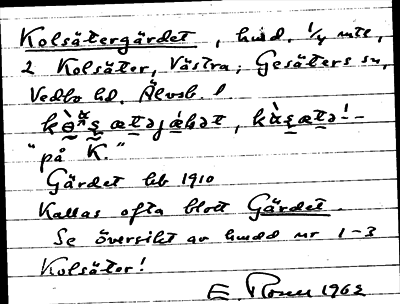 Kolsätergärdet, hmd. 1/4 mtl,
2 Kolsäter, Västra; Gesäters sn,
Vedbo hd. Älvsb. l.
"på K."
Gärdet beb 1910
Kallas ofta blott Gärdet.
Se översikt av hmdd nr 1-3
Kolsäter!
E. Rosell 1962